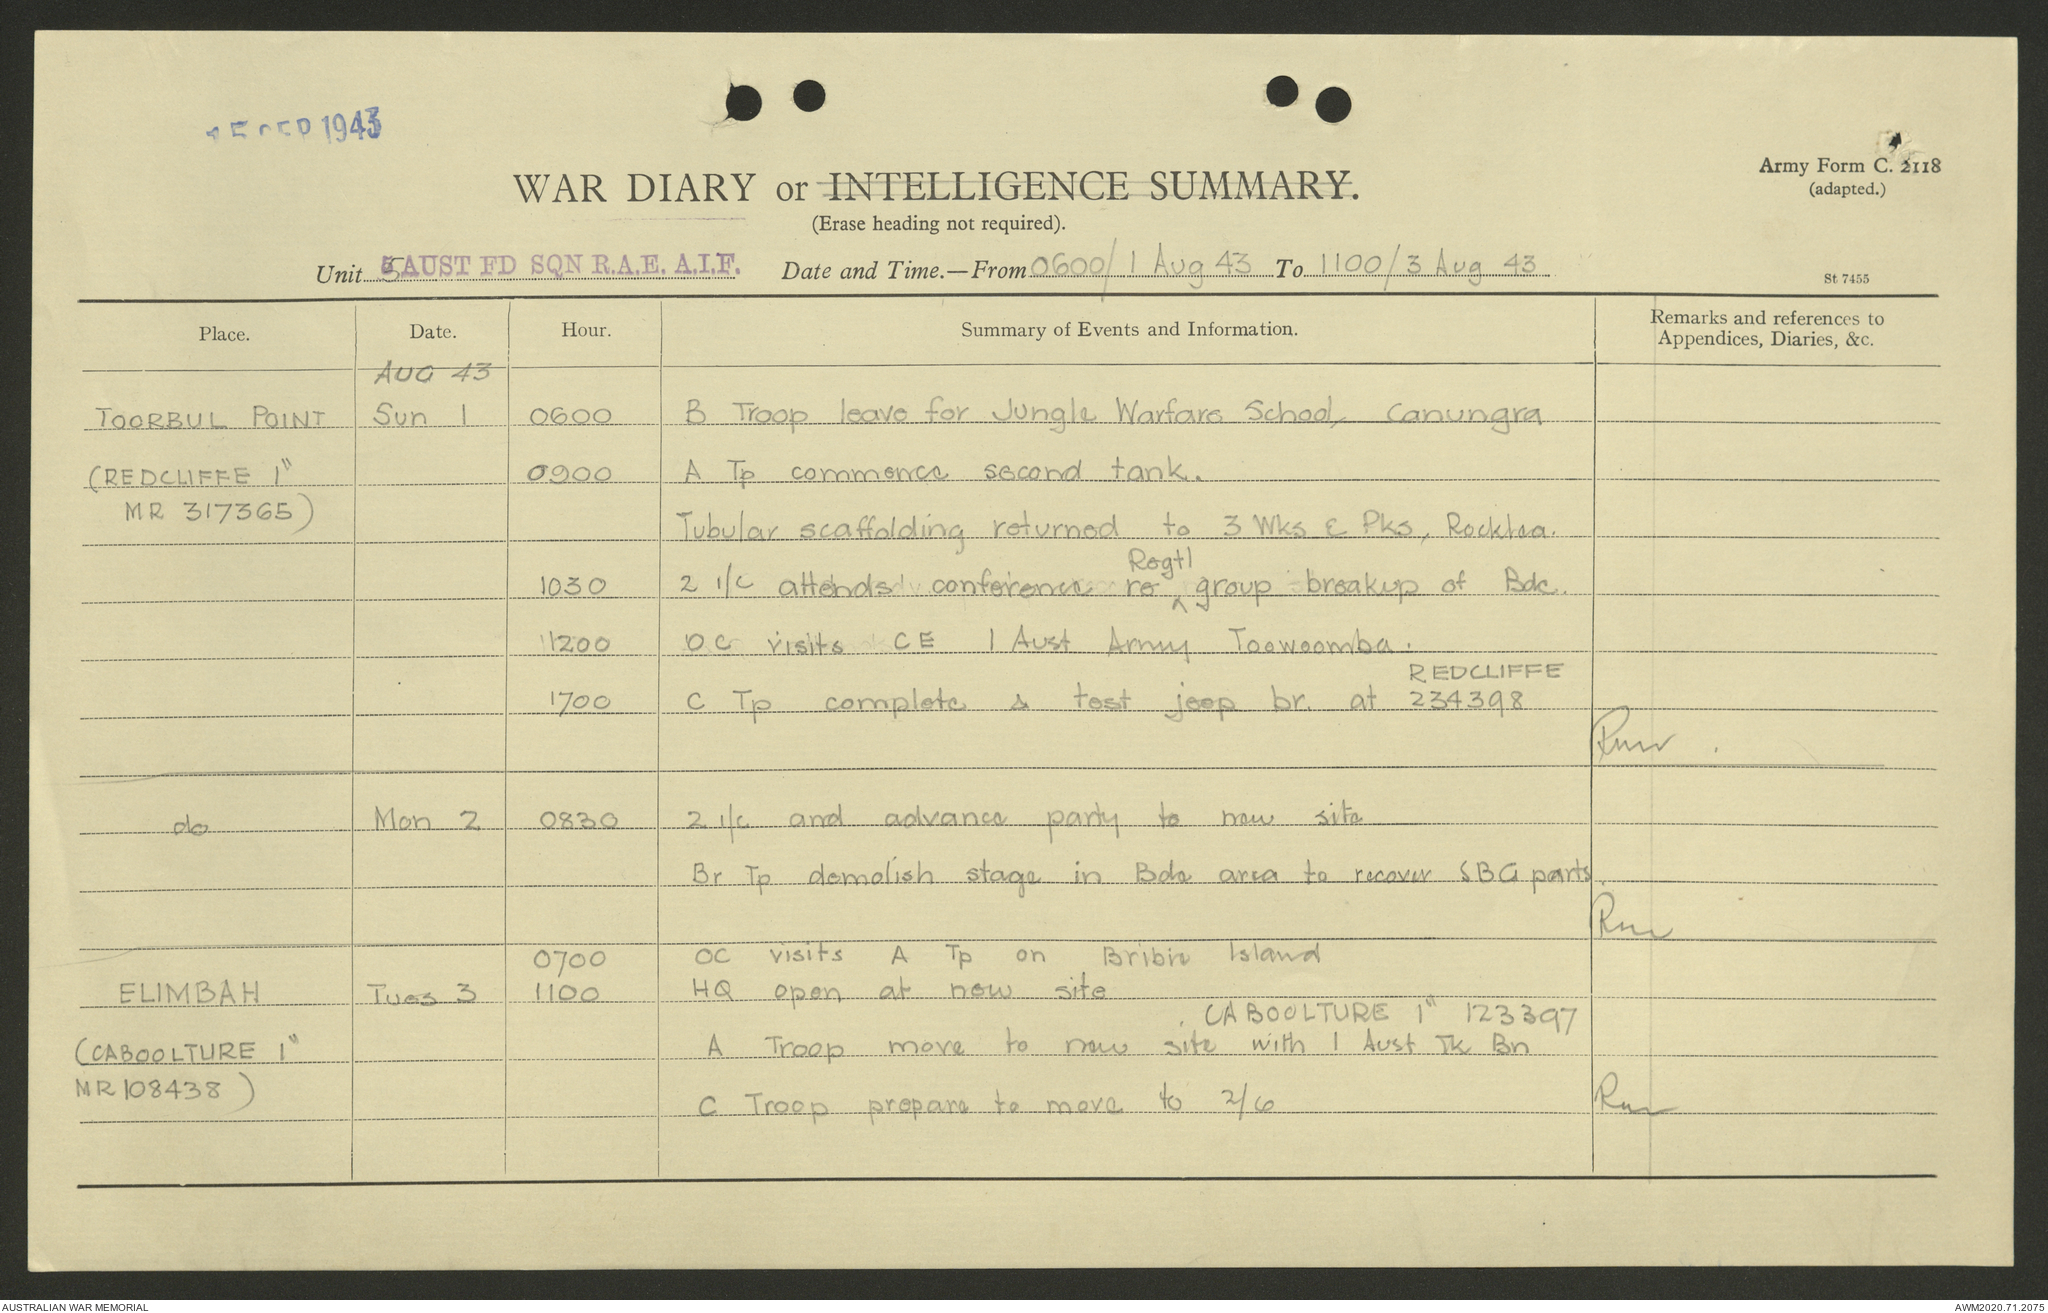 SEP 1943
Army Form C. 2118
(adapted.)
WAR DIARY or INTELLIGENCE SUMMARY.
(Erase heading not required).
Unit 5 AUST FD SQN R.A.E. A.I.F. Date and Time.—From 0600/1 Aug 43 To 1100/3 Aug 43
St 7455
Place. Date. Hour. Summary of Events and Information. Remarks and references to Appendices, Diaries, &c.
AUG 43
TOORBUL POINT Sun 1 0600 B Troop leave for Jungle Warfare School, Canungra
(REDCLIFFE 1" 0900 A Tp commence second tank.
MR 317365)
Tubular scaffolding returned to 3 Wks & Pks, Rocklea.
Regtl
1030 2 i/c attends conference re ^ group breakup of Bde.
1200 OC visits CE 1 Aust Army Toowoomba.
REDCLIFFE
1700 C Tp complete & test jeep br. at 234398
do Mon 2 0830 2 i/c and advance party to new site
Br Tp demolish stage in Bde area to recover SBG parts.
0700 OC visits A Tp on Bribie Island
ELIMBAH Tues 3 1100 HQ open at new site
CABOOLTURE 1" 123397
(CABOOLTURE 1" A Troop move to new site with 1 Aust Tk Bn
MR 108438)
C Troop prepare to move to 2/6
AUSTRALIAN WAR MEMORIAL
AWM2020.71.2075